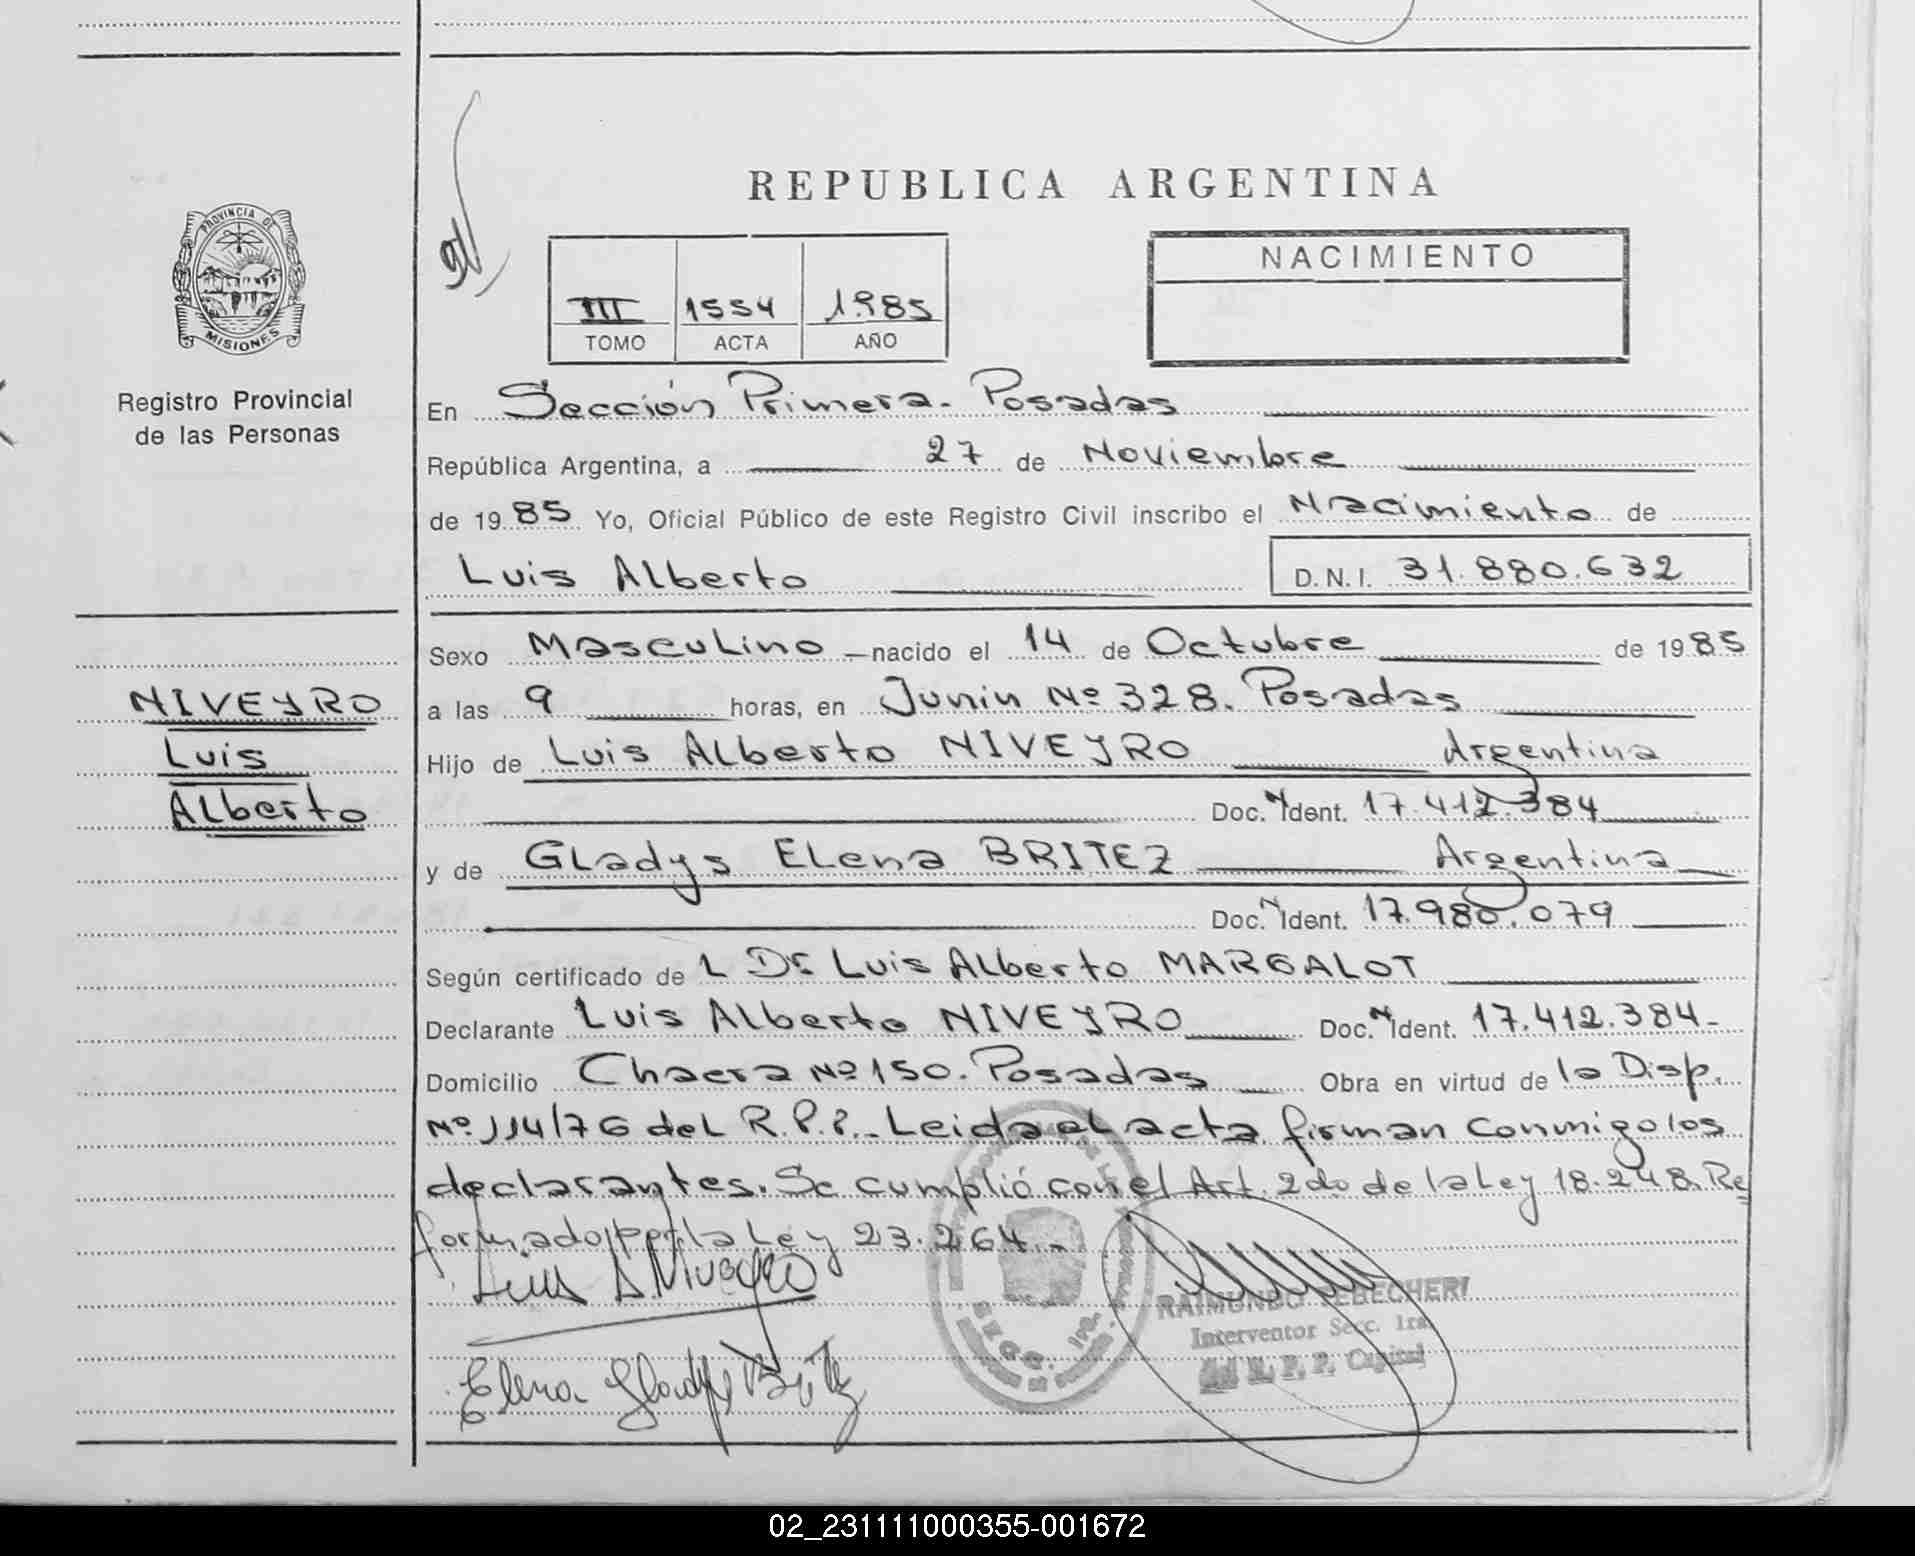 REPUBLICA ARGENTINA
PROVINCIA DE
MISIONES
Registro Provincial
de las Personas
III 1554 1985
TOMO ACTA AÑO
NACIMIENTO
En Sección Primera. Posadas
República Argentina, a 27 de Noviembre
de 1985 Yo, Oficial Público de este Registro Civil inscribo el Nacimiento de
Luis Alberto D.N.I. 31.880.632
NIVEYRO
Luis
Alberto
Sexo Masculino nacido el 14 de Octubre de 1985
a las 9 horas, en Junin Nº 328. Posadas
Hijo de Luis Alberto NIVEYRO Argentina
Doc. N Ident. 17.412.384
y de Gladys Elena BRITEZ Argentina
Doc. N Ident. 17.980.079
Según certificado de L Dr. Luis Alberto MARGALOT
Declarante Luis Alberto NIVEYRO Doc. N Ident. 17.412.384-
Domicilio Chacra Nº 150. Posadas Obra en virtud de la Disp.
Nº 114/76 del R.P.P.- Leida el acta firman conmigo los
declarantes. Se cumplió con el Art. 2do de la Ley 18.248. Re
formado por la Ley 23.264.-
Luis A. Niveyro
Elena Gladys Britez
SECC. 1ra.
RAIMUNDO JEBECHERI
Interventor Secc. 1ra
del R. P. P. Capital
02_231111000355-001672